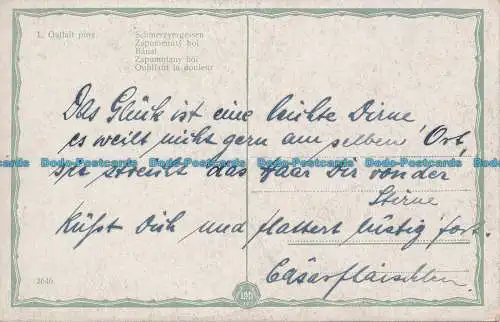 L. Gallait pinx.
Schmerzvergessen
Zapomenutý bol
Bánat
Zapomniany ból
Oubliant la douleur
Das Glück ist eine leichte Dirne
es weilt nicht gern am selben Ort,
sie streicht das Haar Dir von der
Stirne
Küßt Dich und flattert lustig fort.
Cäsar Flaischlen
2646
Dodo-Postcards Dodo-Postcards Dodo-Postcards Dodo-Postcards